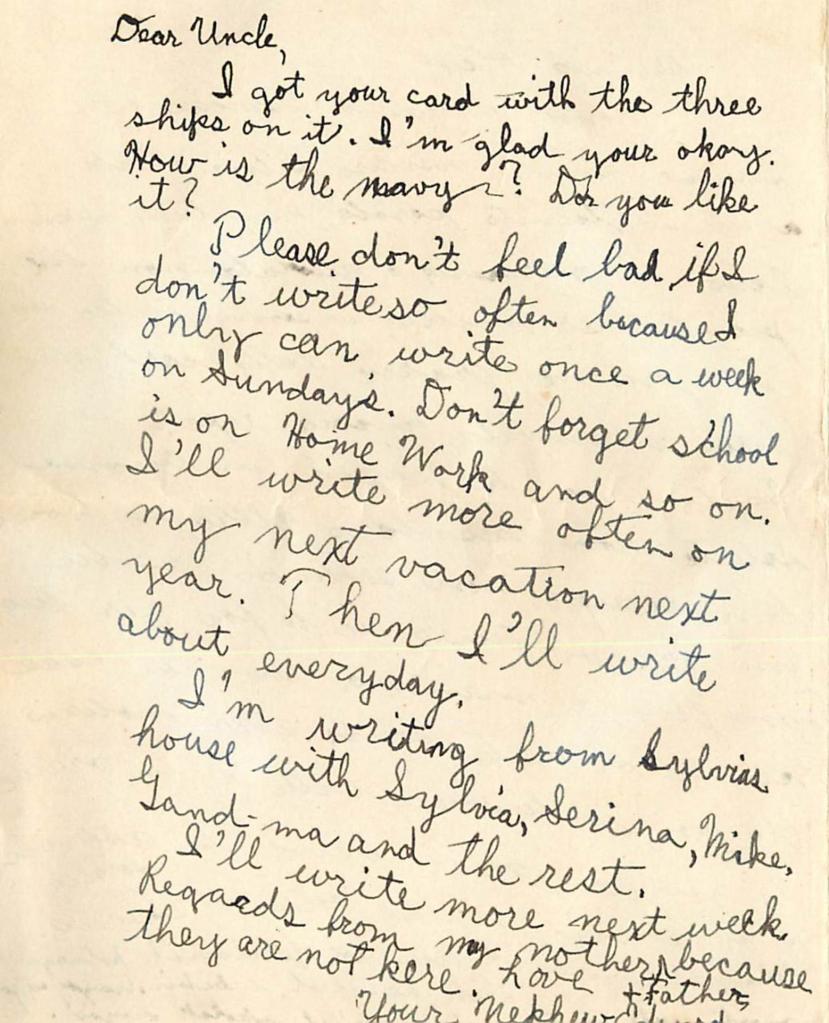 Dear Uncle,
I got your card with the three
ships on it. I'm glad your okay.
How is the navy? Do you like
it?
Please don't feel bad if I
don't write so often because I
only can write once a week
on Sunday's. Don't forget school
is on Home Work and so on.
I'll write more often on
my next vacation next
year. Then I'll write
about everyday.
I'm writing from Sylvias
house with Sylvia, Serina, Mike,
Gand-ma and the rest.
I'll write more next week
Regards from my mother, because
+ Father,
they are not here. Love
Your Nephew